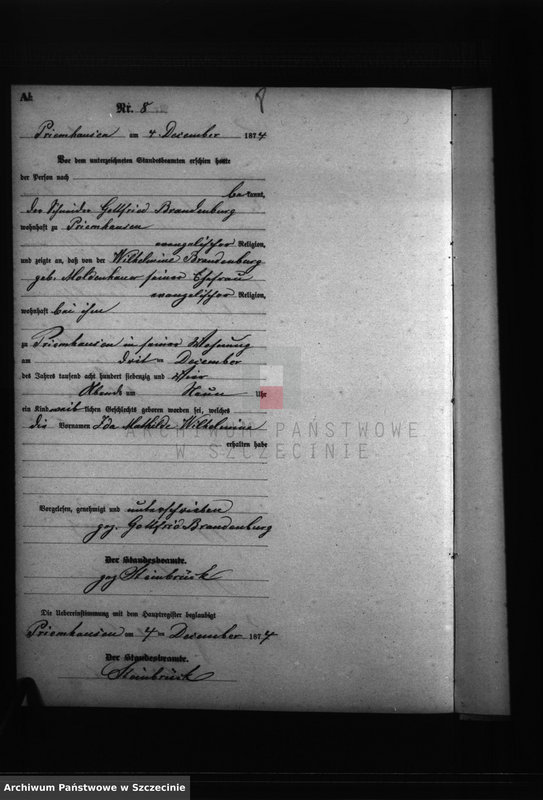 A.
Nr. 8
Priemhausen am 4 December 1874
Vor dem unterzeichneten Standesbeamten erschien heute
der Person nach
bekannt,
der Schneider Gottfried Brandenburg
wohnhaft zu Priemhausen
evangelischer Religion,
und zeigte an, daß von der Wilhelmine Brandenburg
geb. Moldenhauer seiner Ehefrau
evangelischer Religion,
wohnhaft bei ihm
zu Priemhausen in seiner Wohnung
am drit ten December
des Jahres tausend acht hundert siebenzig und Vier
Abends um Neun Uhr
ein Kind weiblichen Geschlechts geboren worden sei, welches
die Vornamen Ida Mathilde Wilhelmine
erhalten habe
ARCHIWUM PAŃSTWOWE
W SZCZECINIE
Vorgelesen, genehmigt und unterschrieben
gez. Gottfried Brandenburg
Der Standesbeamte.
gez Steinbrück
Die Uebereinstimmung mit dem Hauptregister beglaubigt
Priemhausen am 4 ten December 1874
Der Standesbeamte.
Steinbrück
Archiwum Państwowe w Szczecinie